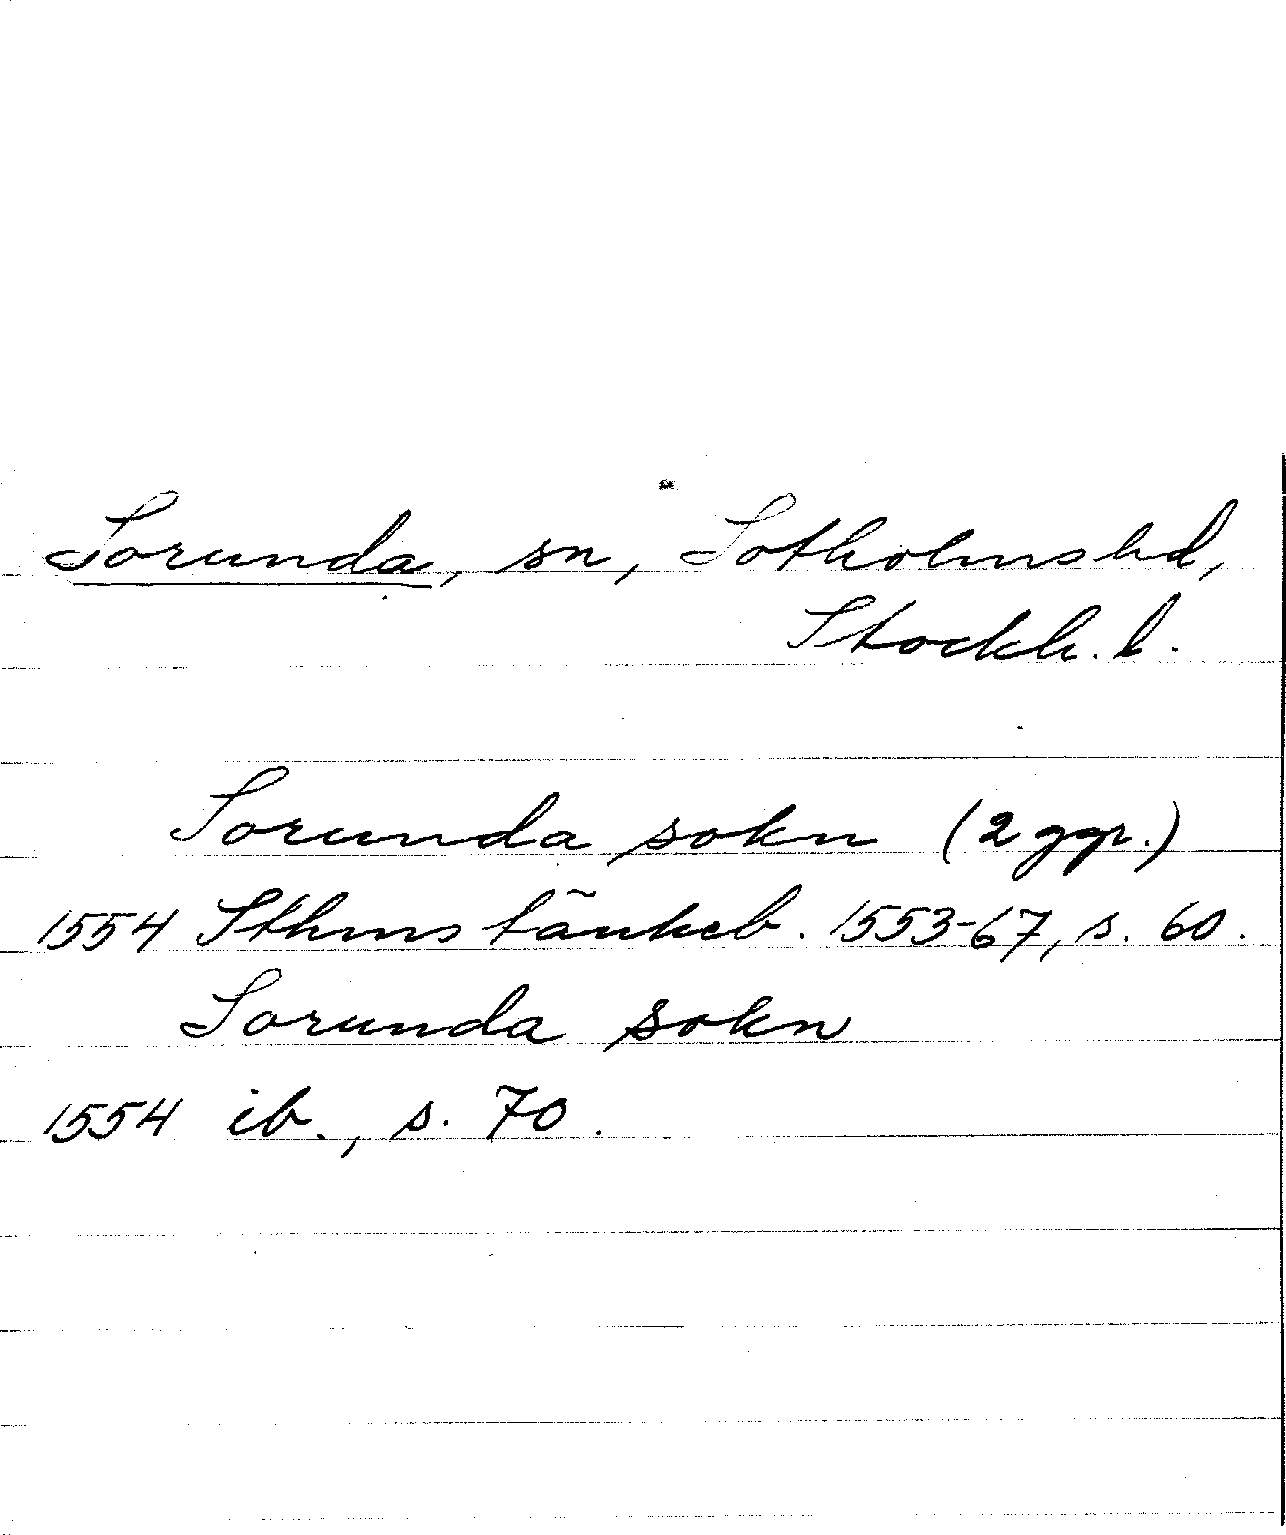 Sorunda, sn, Sotholmshd,
Stockh. l.
Sorunda sokn (2 ggr.)
1554 Sthms tänkeb. 1553-67, s. 60.
Sorunda sokn
1554 ib., s. 70.